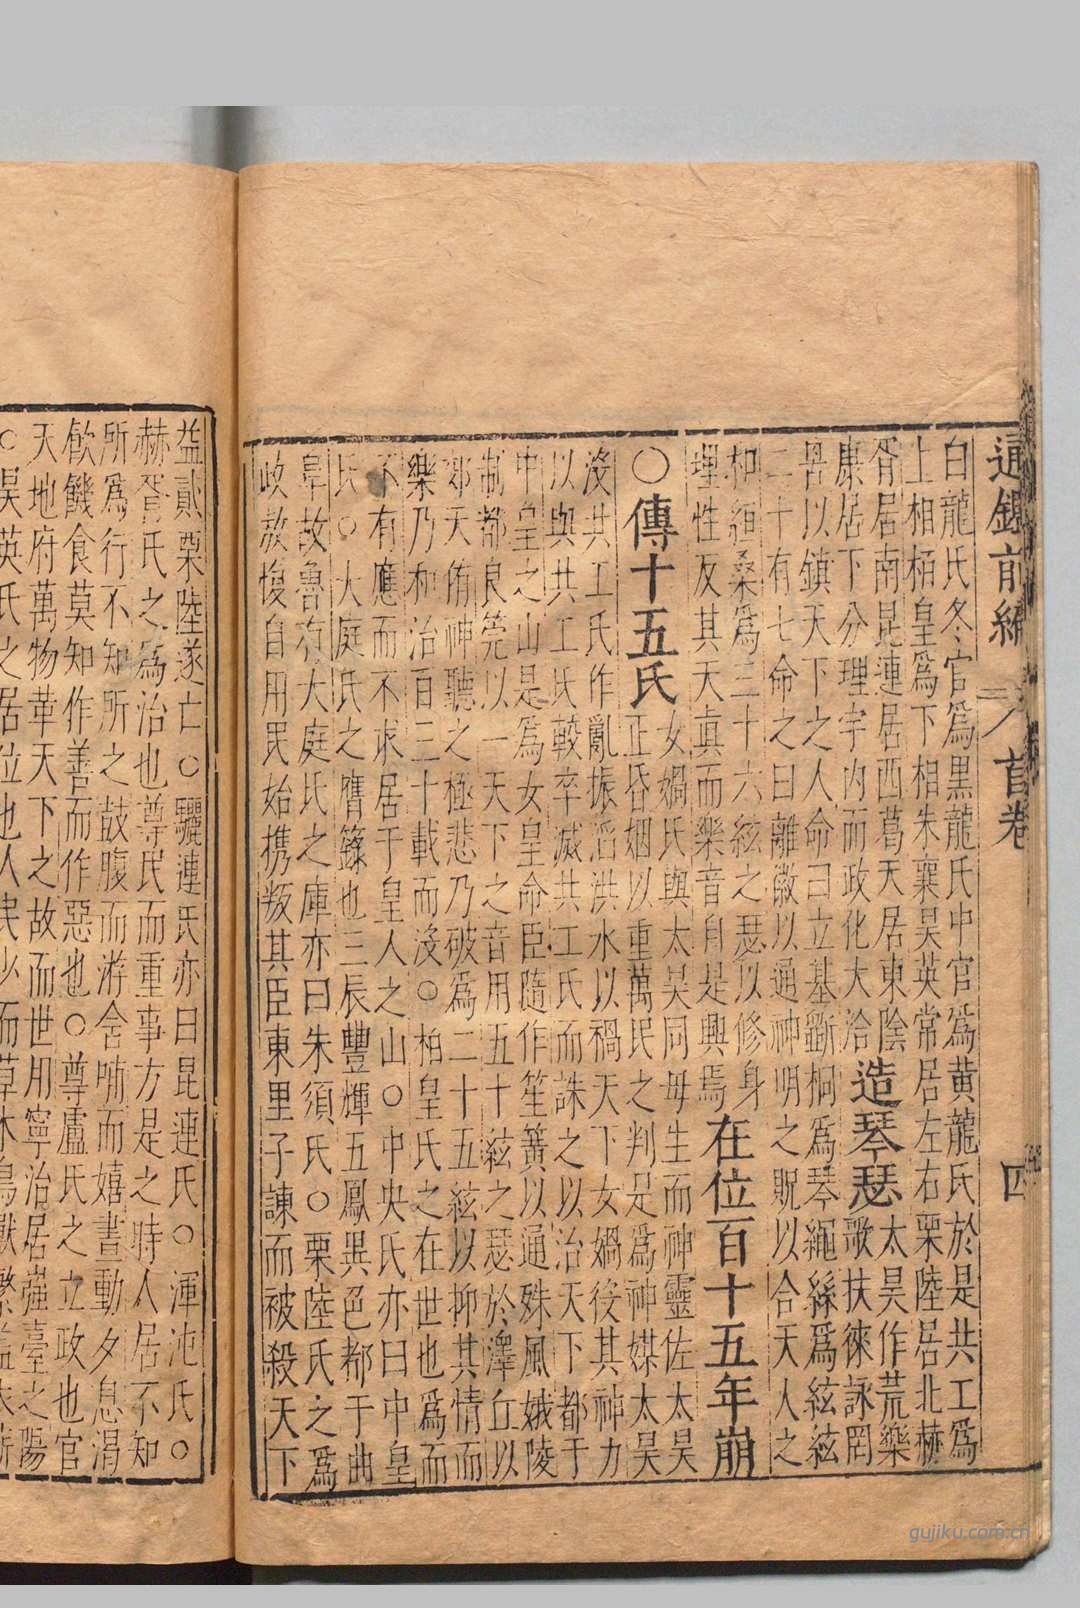 通鑑前編
首卷
四
白龍氏冬官為黑龍氏中官為黃龍氏於是共工為
上相栢皇為下相朱襄昊英常居左右栗陸居北赫
胥居南昆連居西葛天居東陰
康居下分理宇内而政化大洽
造琴瑟
太昊作荒樂
歌扶徠詠罔
罟以鎮天下之人命曰立基斵桐為琴繩絲為絃絃
二十有七命之曰離徽以通神明之貺以合天人之
和絙桑為三十六絃之瑟以修身
理性反其天真而樂音自是興焉
在位百十五年崩
○傳十五氏
女媧氏與太昊同母生而神靈佐太昊
正昏姻以重萬民之判是為神媒太昊
沒共工氏作亂振滔洪水以禍天下女媧役其神力
以與共工氏較卒滅共工氏而誅之以治天下都于
中皇之山是為女皇命臣隨作笙簧以通殊風娥陵
制都良筦以一天下之音用五十絃之瑟於澤丘以
郊天侑神聽之極悲乃破為二十五絃以抑其情而
樂乃和治百三十載而沒○栢皇氏之在世也為而
不有應而不求居于皇人之山○中央氏亦曰中皇
氏○大庭氏之膺籙也三辰豐輝五鳳異色都于曲
阜故魯有大庭氏之庫亦曰朱須氏○栗陸氏之為
政敖愎自用民始携叛其臣東里子諫而被殺天下
益貳栗陸遂亡○驪連氏亦曰昆連氏○渾沌氏○
赫胥氏之為治也尊民而重事方是之時人居不知
所為行不知所之鼓腹而游含哺而嬉晝動夕息渴
飲饑食莫知作善而作惡也○尊盧氏之立政也官
天地府萬物華天下之故而世用寧治居强臺之陽
○昊英氏之居位也人民少而草木鳥獸繁
gujiku.com.cn